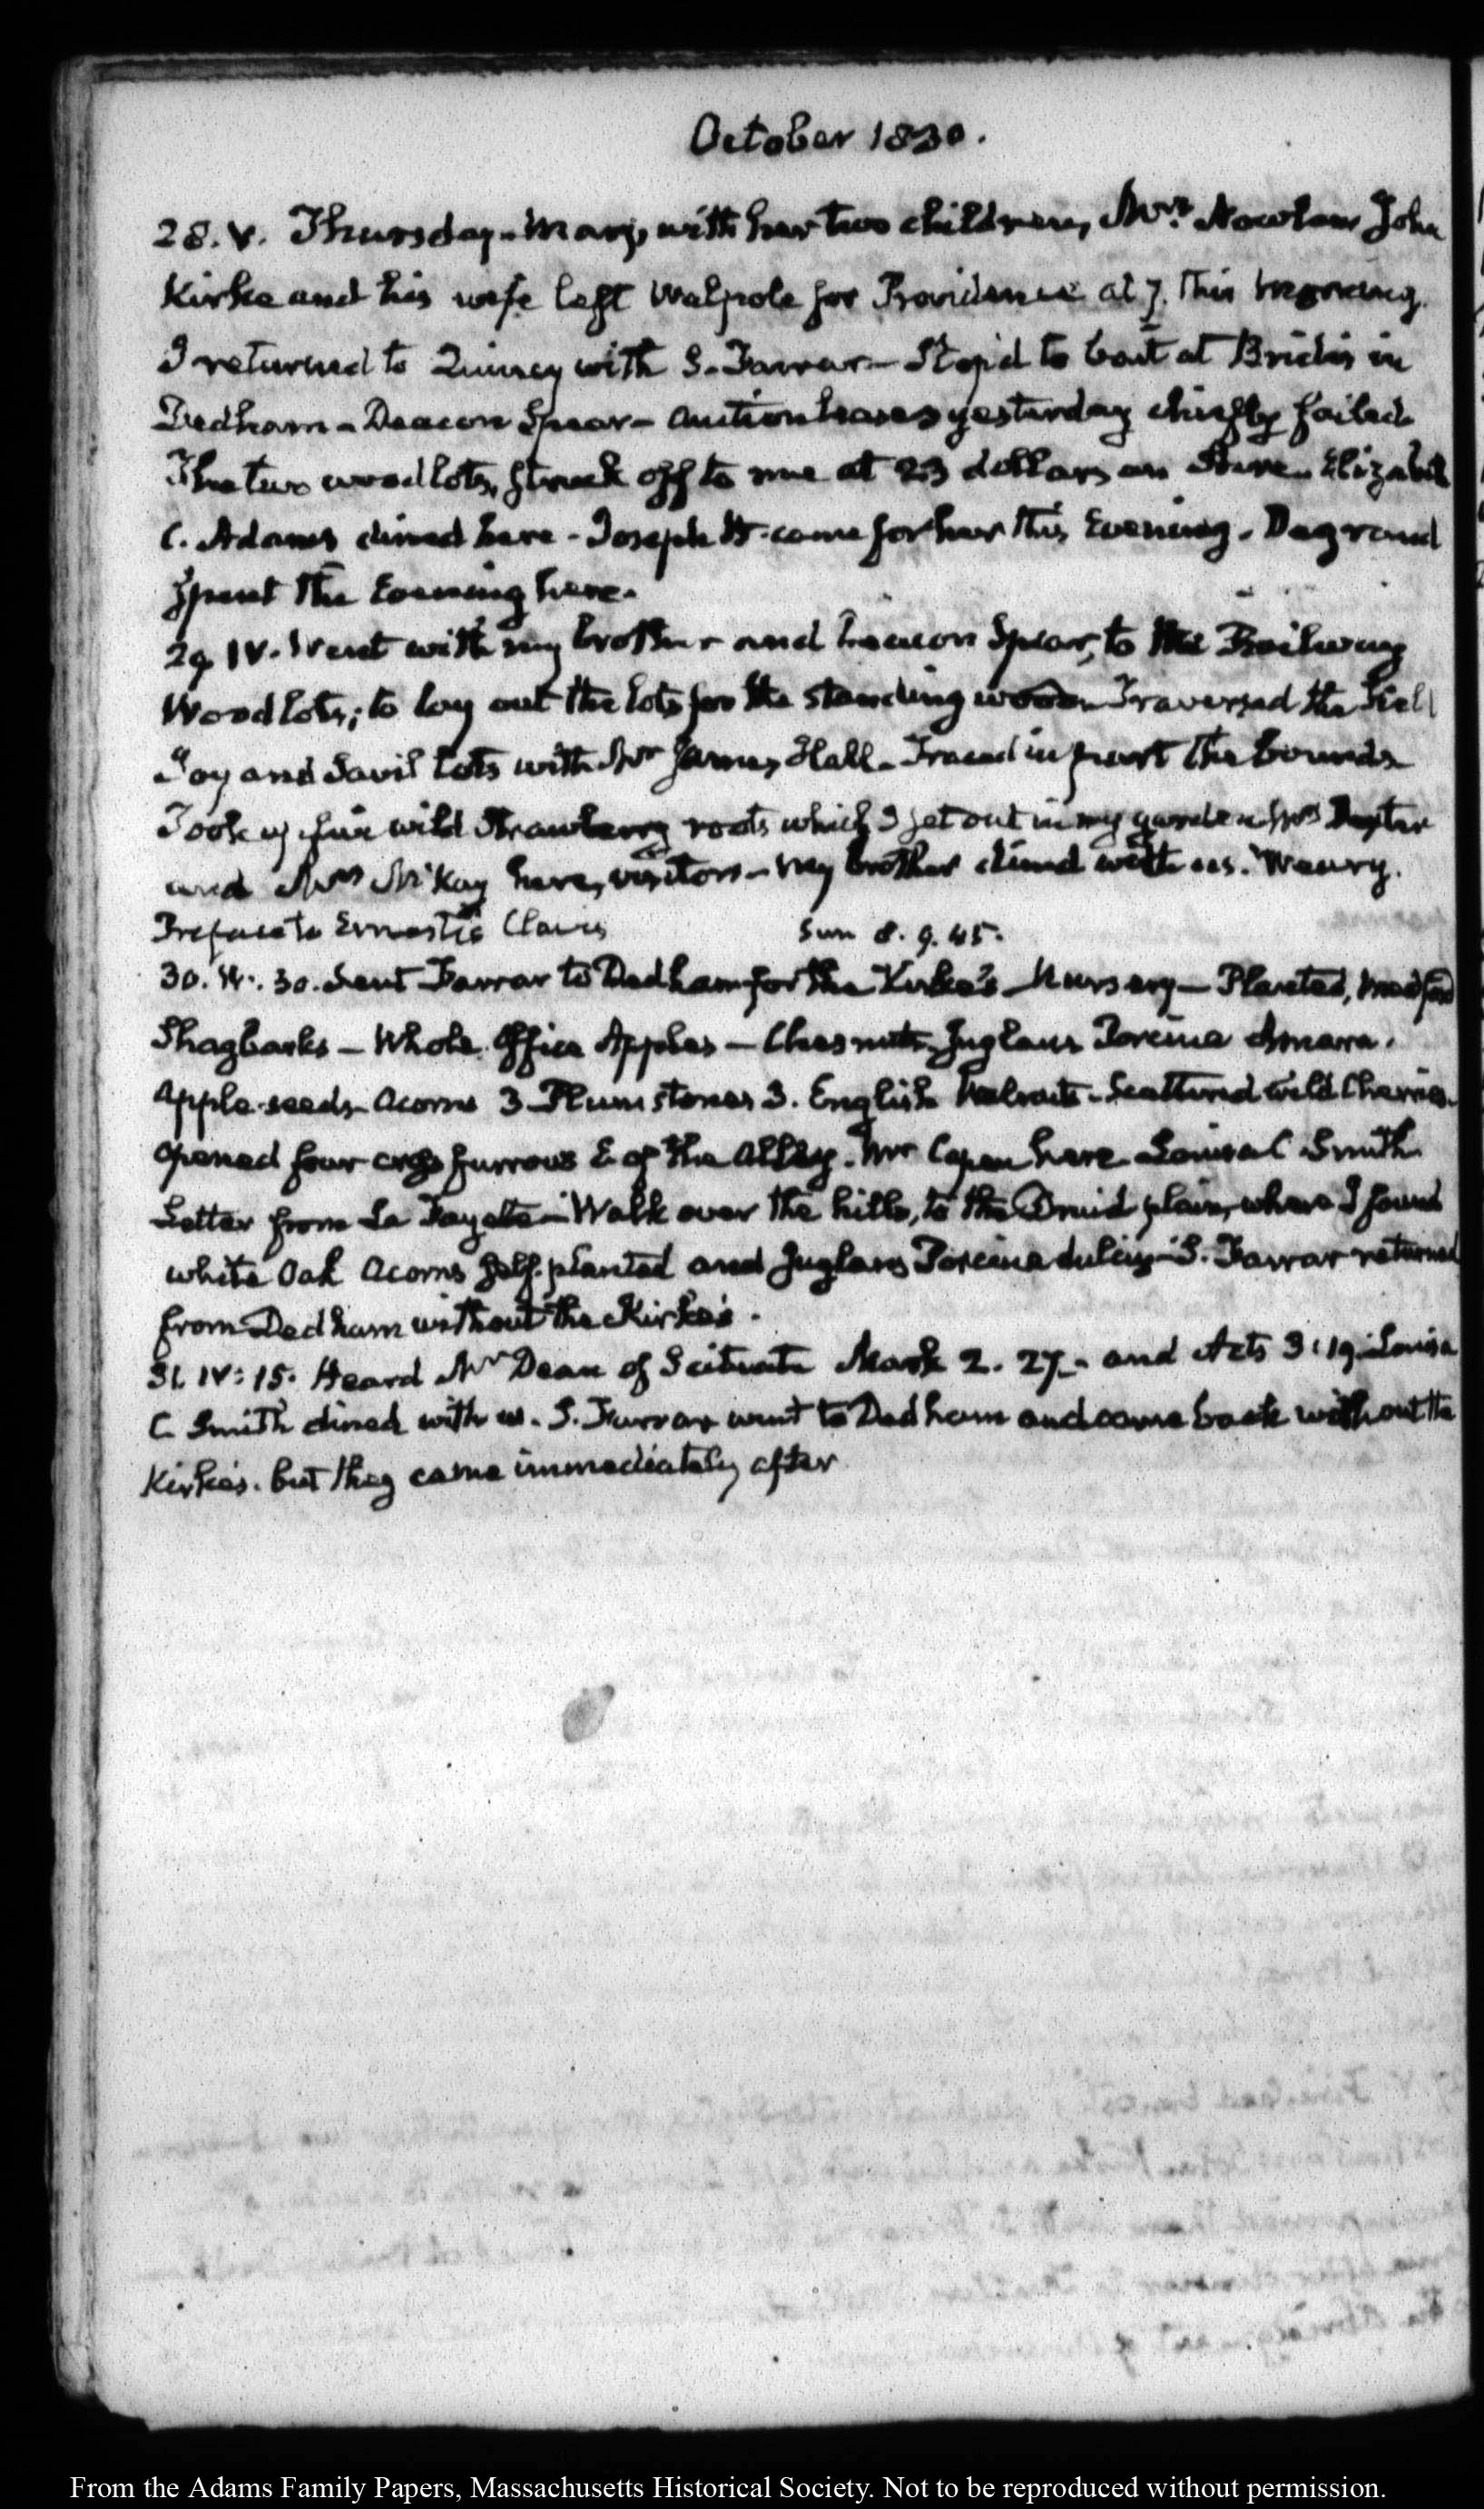 October 1830.
28. V. Thursday - Mary, with her two children, Mrs. Nowlan John
Kirke and his wife left Walpole for Providence at 7. this morning.
I returned to Quincy with S. Farrar - Stop'd to bait at Brides in
Dedham - Deacon Spear - Auction leases yesterday chiefly failed
The two wood lots, struck off to me at 23 dollars an Acre - Elizabeth
C. Adams dined here - Joseph H. came for her this Evening. Degrand
Spent the Evening here.
29. IV. Went with my brother and Deacon Spear, to the Railway
Wood lots; to lay out the lots for the standing wood - Traversed the
Joy and Savil Lots with Mr James Hall - Traced in part the bounds
Took up five wild Strawberry roots which I set out in my garden Mrs Dexter
and Mrs McKay here, visitors - My brother dined with us. Weary.
Preface to Ernesti's Clavis
Sun 8. 9. 45.
30. IV: 30. Sent Farrar to Dedham for the Kirke's - Nursery - Planted, Medford
Shagbarks - Whole Office Apples - Chesnuts Juglans Porcina Amara.
Apple-seeds Acorns 3 Plum stones 3. English Walnuts - Scattered wild Cherries.
opened four cross furrows E of the Alley. Mr Capen here Louisa C Smith
Letter from La Fayette - Walk over the hills, to the Druid plain, where I found
white Oak Acorns self-planted and Juglans Porcina dulcis - S. Farrar returned
from Dedham without the Kirke's.
31. IV: 15. Heard Mr Dean of Scituate Mark 2. 27. - and Acts 3:19. Louisa
C Smith dined with us. S. Farrar went to Dedham and came back without the
Kirke's. but they came immediately after
From the Adams Family Papers, Massachusetts Historical Society. Not to be reproduced without permission.